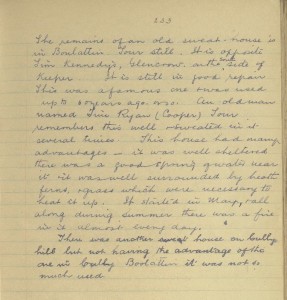 223
The remains of an old sweat-house is
in Boulattin Tour still. It is opposite
Jim Kennedy's, Glencrow, on the south side of
Keeper. It is still in good repair
This was a famous one & was used
up to 60 years ago or so. An old man
named Jim Ryan (Cooper) Tour
remembers this well & sweated in it
several times. This house had many
advantages - it was well sheltered
there was a good spring of water near
it & it was well surrounded by heath
ferns, & grass which were necessary to
heat it up. It started in May, & all
along during summer there was a fire
in it almost every day.
There was another sweat house on Cully
hill but not having the advantage of the
one in Boolattin it was not so
much used